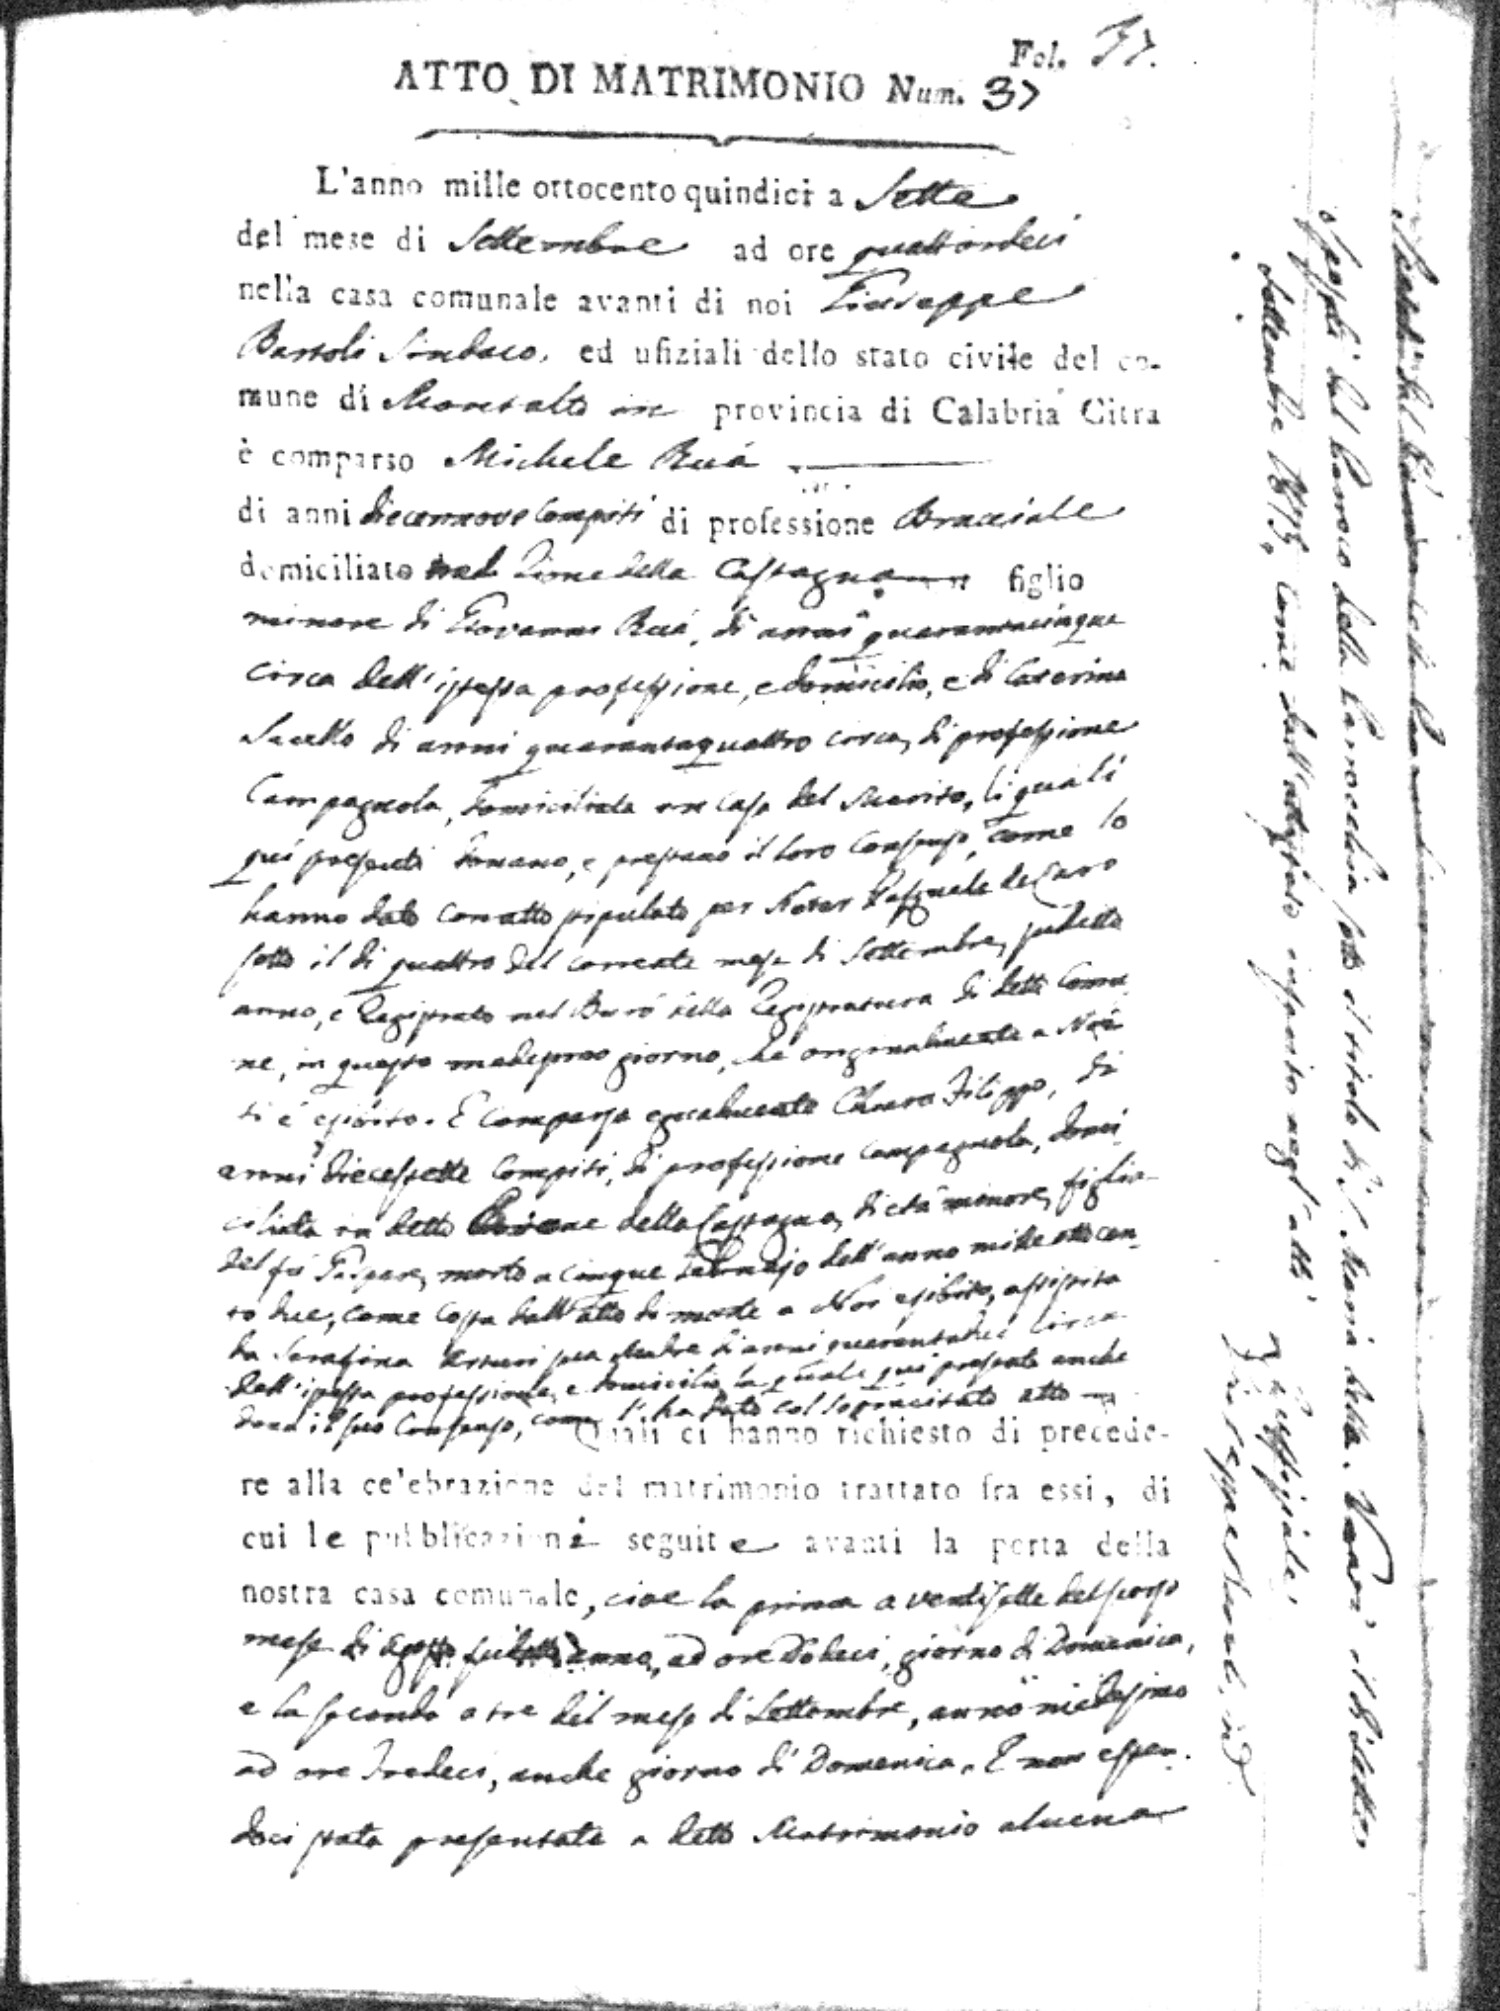 Fol. 37.
ATTO DI MATRIMONIO Num. 37
L'anno mille ottocento quindici a Sette
del mese di Settembre ad ore quattordeci
nella casa comunale avanti di noi Giuseppe
Bartoli Sindaco, ed ufiziali dello stato civile del co-
mune di Montalto in provincia di Calabria Citra
è comparso Michele Ruá
di anni diecennove compiti di professione Bracciale
domiciliato della Castagna figlio
minore di Giovanni Ruá, di anni quarantacinque
circa dell'istessa professione, e domicilio, e di Caterina
di anni quarantaquattro circa, di professione
Campagnola, domiciliata in casa del Marito, li quali
quì presenti donano, e prestano il loro consenso, come lo
hanno dato con atto stipulato per Notar Pasquale de Caro
sotto il di quattro del corrente mese di Settembre, sudetto
anno, e Registrato nel Buró della Registratura di detta Comu
ne, in questo medesimo giorno, che originalmente a Noi
ti é esibito. E comparsa egualmente Chiara Filippo, di
anni diecessette compiti, di professione campagnola, domi
ciliata in detto della Castagna, di età minore, figlia
del fú Gaspare, morto a cinque Febrajo dell'anno mille ottocen
to due, come costa dall'atto di morte a Noi esibito, assistita
da Serafina Arturi sua Madre di anni quarantadue circa
dell'istessa professione, e domicilio, la quale quì presente anche
dona il suo consenso, come l'ha dato col sopracitato atto
Quali ci hanno richiesto di procede-
re alla celebrazione del matrimonio trattato fra essi, di
cui le pubblicazioni seguite avanti la porta della
nostra casa comunale, cioe la prima a ventisette del scorso
mese di Agosto sudetto anno, ad ore Dodeci, giorno di Domenica,
e la seconda a tre del mese di Settembre, anno medesimo
ad ore Tredeci, anche giorno di Domenica. E non essen-
doci stata presentata a detto Matrimonio alcuna
Sposati dal Parroco della Parrocchia sotto il titolo di S. Maria della
Settembre 1815, come dall'attestato inserito negl'atti
L'uffiziale
Giuseppe Bartoli